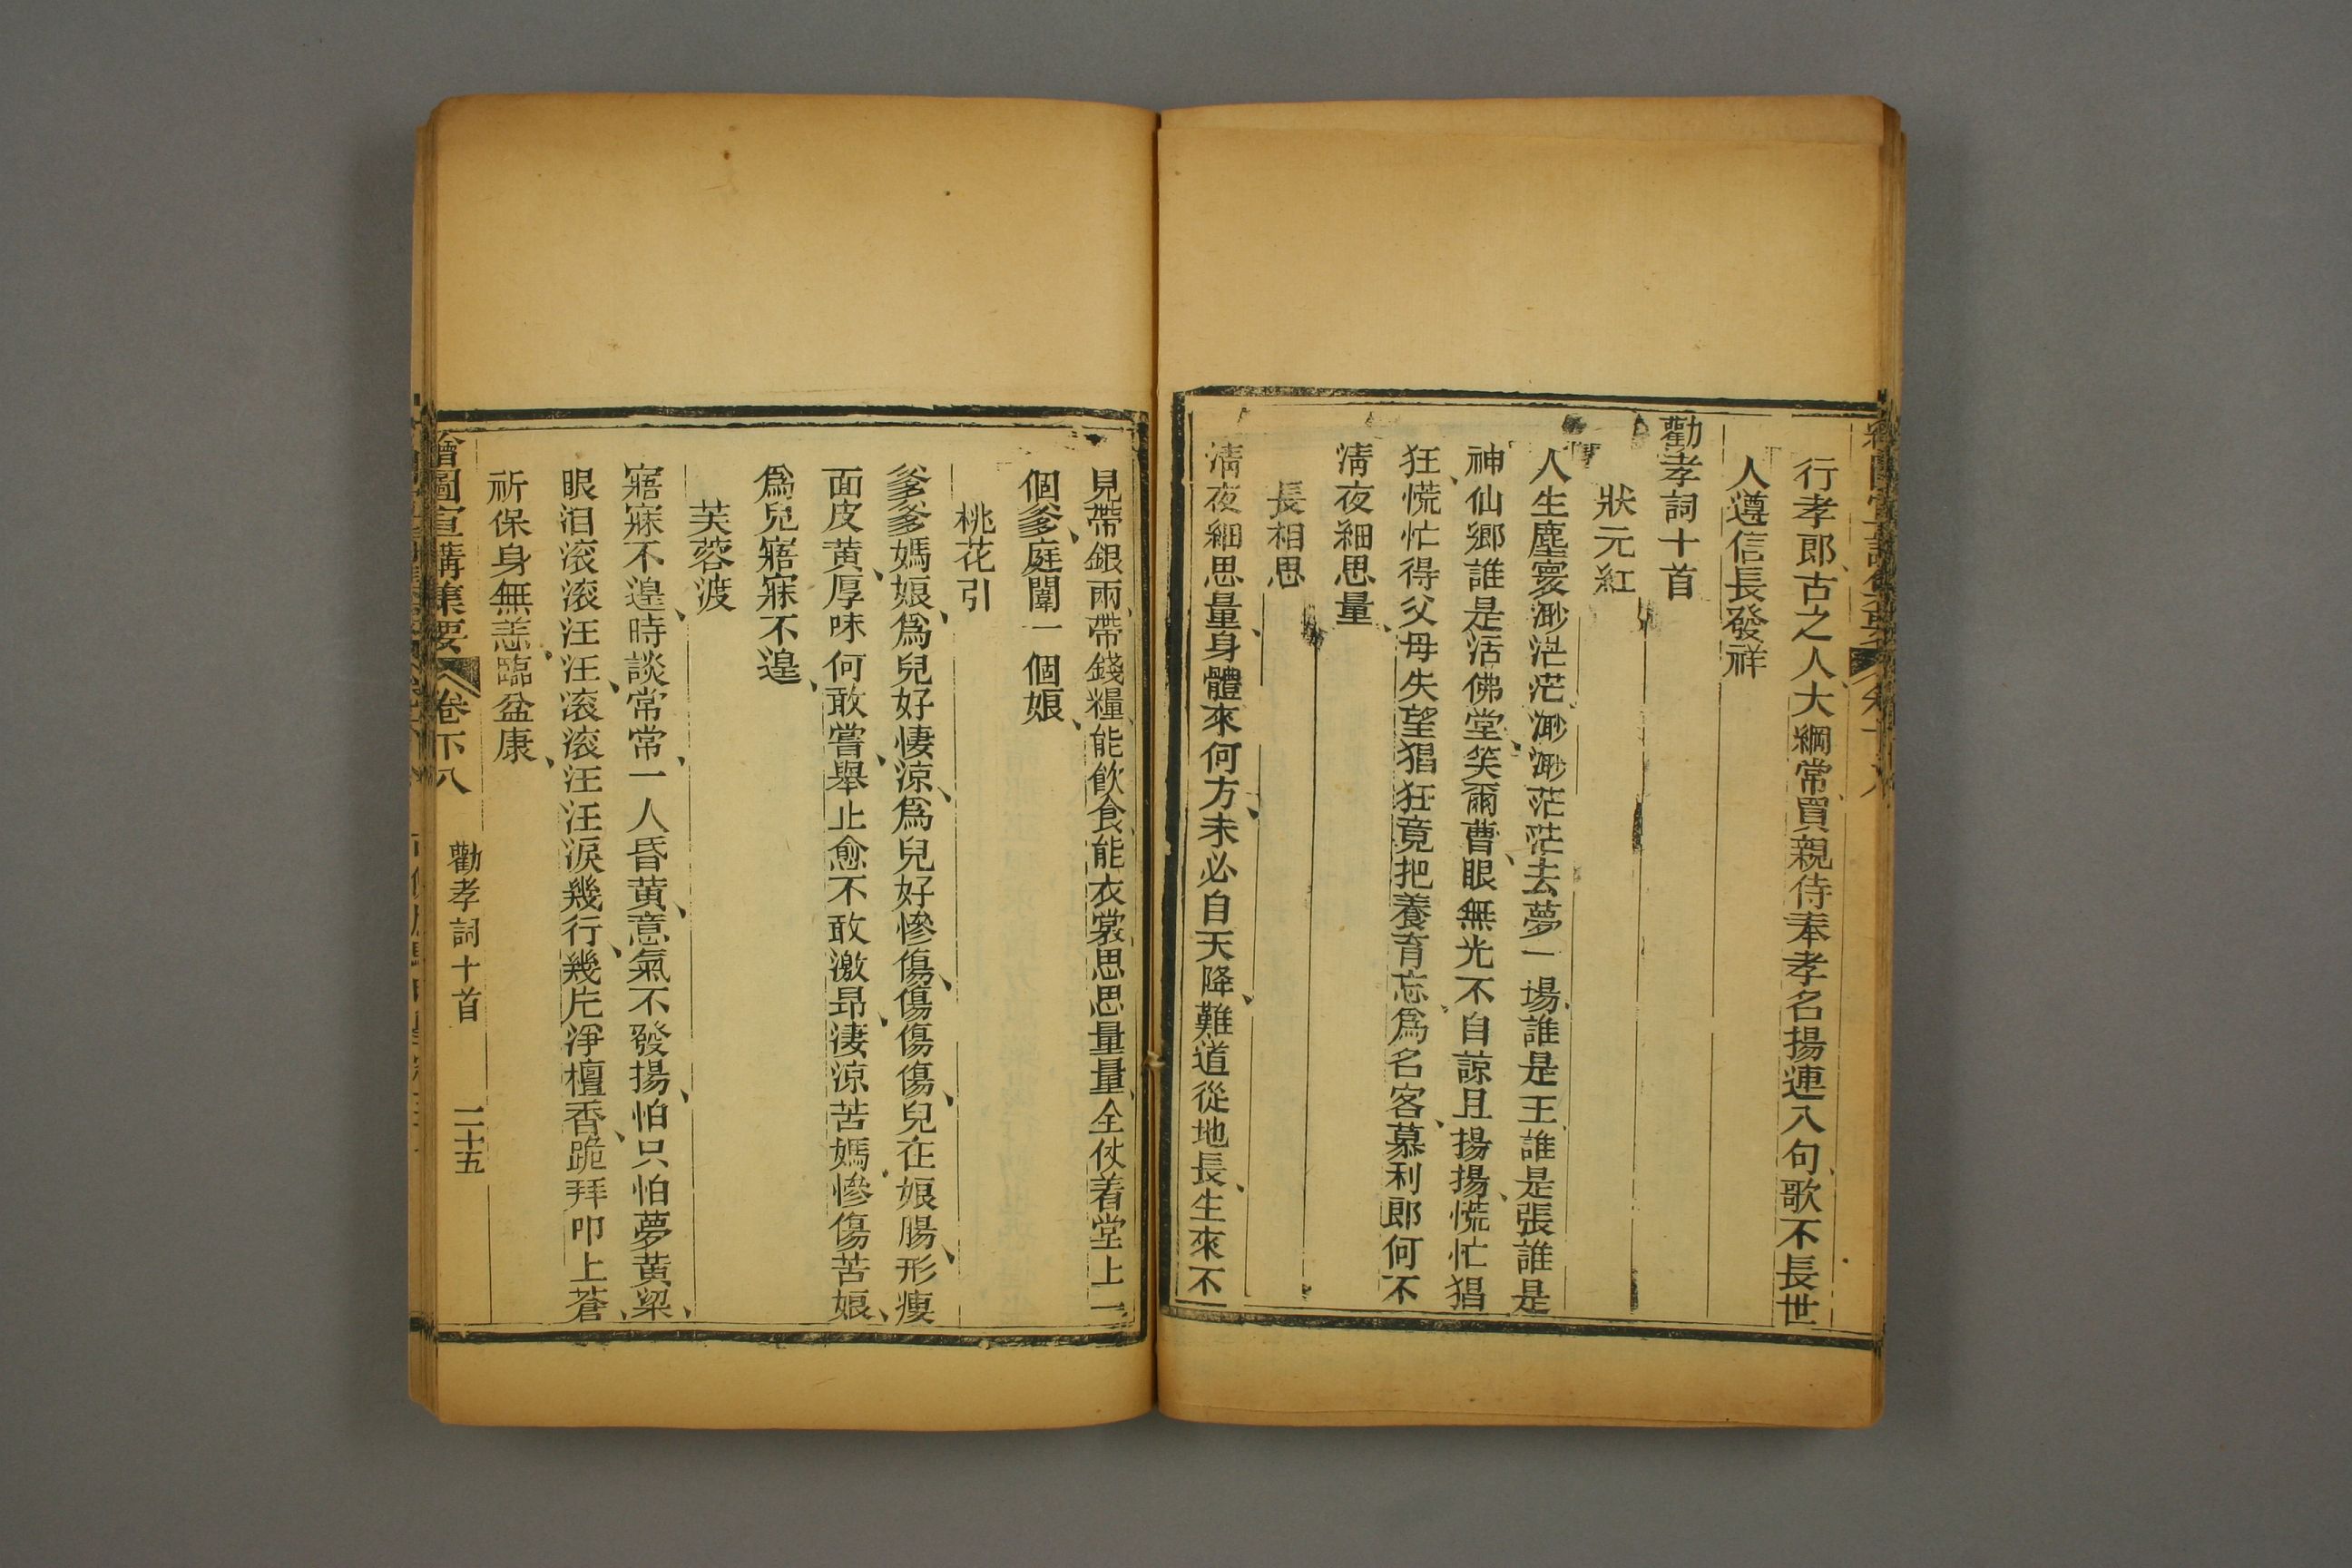 行孝郎古之人大綱常買親侍奉孝名揚連入句歌不長世
人遵信長發祥
勸孝詞十首
狀元紅
人生塵寰渺茫茫渺渺茫茫去夢一場誰是王誰是張誰是
神仙鄉誰是活佛堂笑爾曹眼無光不自諒且揚揚慌忙猖
狂慌忙得父母失望猖狂竟把養育忘爲名客慕利郎何不
淸夜細思量
長相思
淸夜細思量身體來何方未必自天降難道從地長生來不
見帶銀兩帶錢糧能飲食能衣裳思思量量全仗着堂上一
個爹庭闈一個娘
桃花引
爹爹媽娘爲兒好悽涼爲兒好慘傷傷傷傷兒在娘腸形瘦
面皮黃厚味何敢嘗舉止愈不敢激昂淒涼苦媽慘傷苦娘
爲兒寤寐不遑
芙蓉渡
寤寐不遑時談常常一人昏黃意氣不發揚怕只怕夢黃粱
眼泪滾滾汪汪滾滾汪汪淚幾行幾片淨檀香跪拜叩上蒼
祈保身無恙臨盆康
繪圖宣講集要 卷下八 勸孝詞十首 二十五